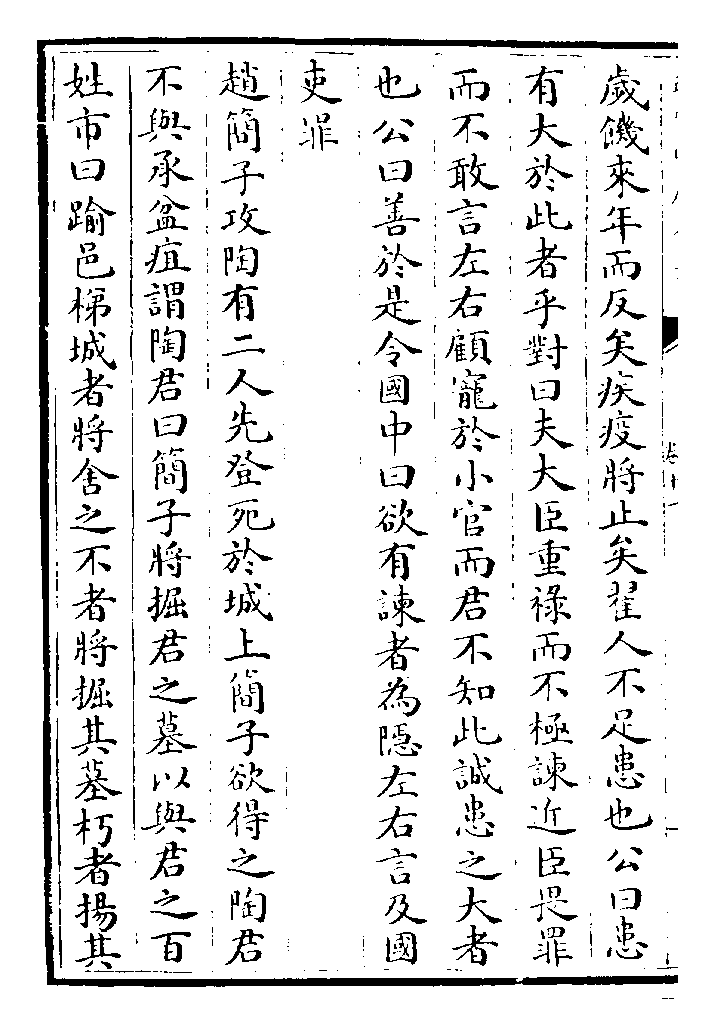 歲饑來年而反矣疾疫將止矣翟人不足患也公曰患
有大於此者乎對曰夫大臣重祿而不極諫近臣畏罪
而不敢言左右顧寵於小官而君不知此誠患之大者
也公曰善於是令國中曰欲有諫者為隱左右言及國
吏罪
趙簡子攻陶有二人先登死於城上簡子欲得之陶君
不與承盆疽謂陶君曰簡子將掘君之墓以與君之百
姓市曰踰邑梯城者將舍之不者將掘其墓朽者揚其